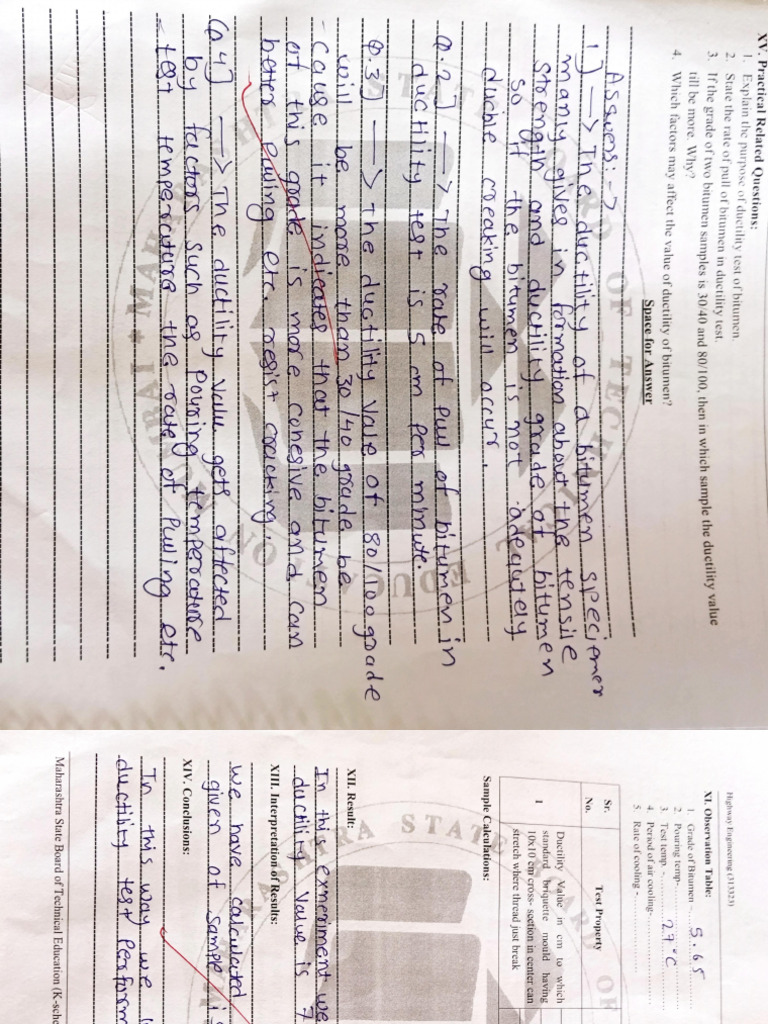 XV. Practical Related Questions:
1. Explain the purpose of ductility test of bitumen.
2. State the rate of pull of bitumen in ductility test.
3. If the grade of two bitumen samples is 30/40 and 80/100, then in which sample the ductility value
till be more. Why?
4. Which factors may affect the value of ductility of bitumen?
Space for Answer
Asswers:->
1] -> The ductility of a bitumen specimer
manly gives in formation about the tensile
strength and ductility grade of bitumen
so if the bitumen is not adequtely
ducble creaking will occur.
Q.2] -> The rate of pull of bitumen in
ductility test is 5 cm per minute.
Q.3] -> The ductility vale of 80/100 grade
will be more than 30/40 grade be
-cause it indicates that the bitumen
of this grade is more cohesive and can
better pwing etc. regist cracking.
Q.4] -> The ductility value gets affected
by factors such as pouring temperature
- test temperature the rate of puwing etc.
Highway Engineering (313323)
XI. Observation Table:
1. Grade of Bitumen - 5.65
2. Pouring temp-
3. Test temp. - 27°C
4. Period of air cooling-
5. Rate of cooling -
Sr. No. Test Property
1 Ductility Value in cm to which
standard briquette mould having
10x10 cm cross- section in center can
stretch where thread just break
Sample Calculations:
XII. Result:
In this experiment we
ductility value is 7
XIII. Interpretation of Results:
we have calculated
given of sample is
XIV. Conclusions:
In this way we
ductility test perform
Maharashtra State Board of Technical Education (K-sche